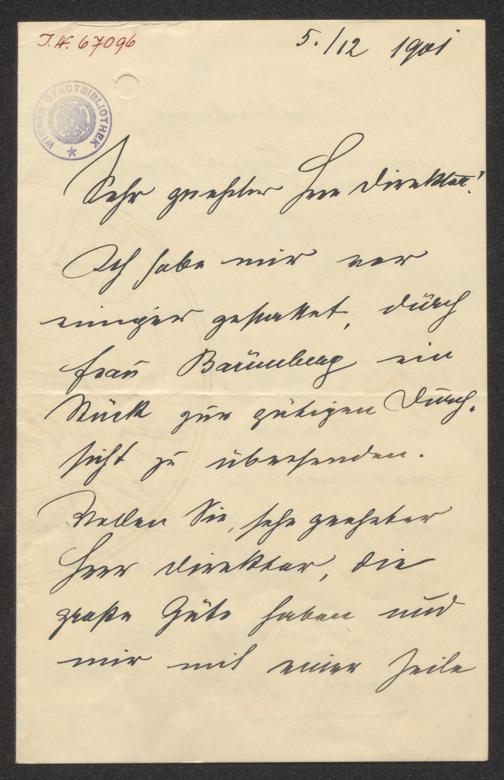 J.N. 67096
5./12 1901
WIENER STADTBIBLIOTHEK
Sehr geehrter Herr Direktor!
Ich habe mir vor
einiger gestattet, durch
Frau Baumberg ein
Stück zur gütigen Durch-
sicht zu übersenden.
Wollen Sie, sehr geehrter
Herr Direktor, die
große Güte haben und
mir mit einer Zeile